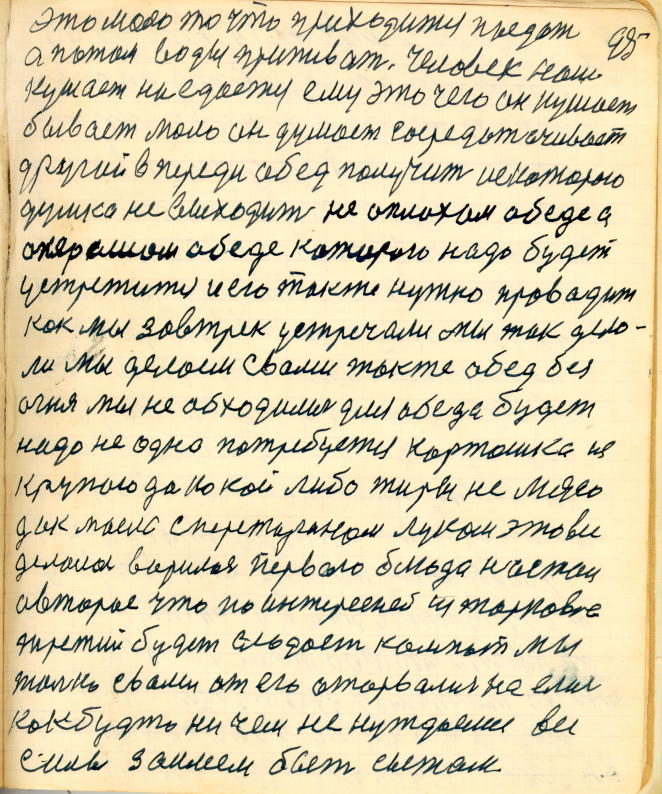 это мало то что приходится предот
95
а потом воды припиват. Человек наш
кушает наедается ему это чего он кушает
бывает мало он думает сосредотачивает
другой в переди обед получит искоторого
думка не выходит не оплохом обеде а
охорошом обеде которого надо будет
устретится иего также нужно провадит
как мы завтрек устречали мы так дела-
ли мы делаем свами также обед без
огня мы не обходимся для обеда будет
надо не одна потребуется картошка и
крупою да какой либо жиры не мясо
дак масла
луком этови
делани варился первого блюда настаи
авторое что поинтересней
третий будет сладост компот мы
толко свами от его оторвались на елис
какбудто ни чем не нуждаемся